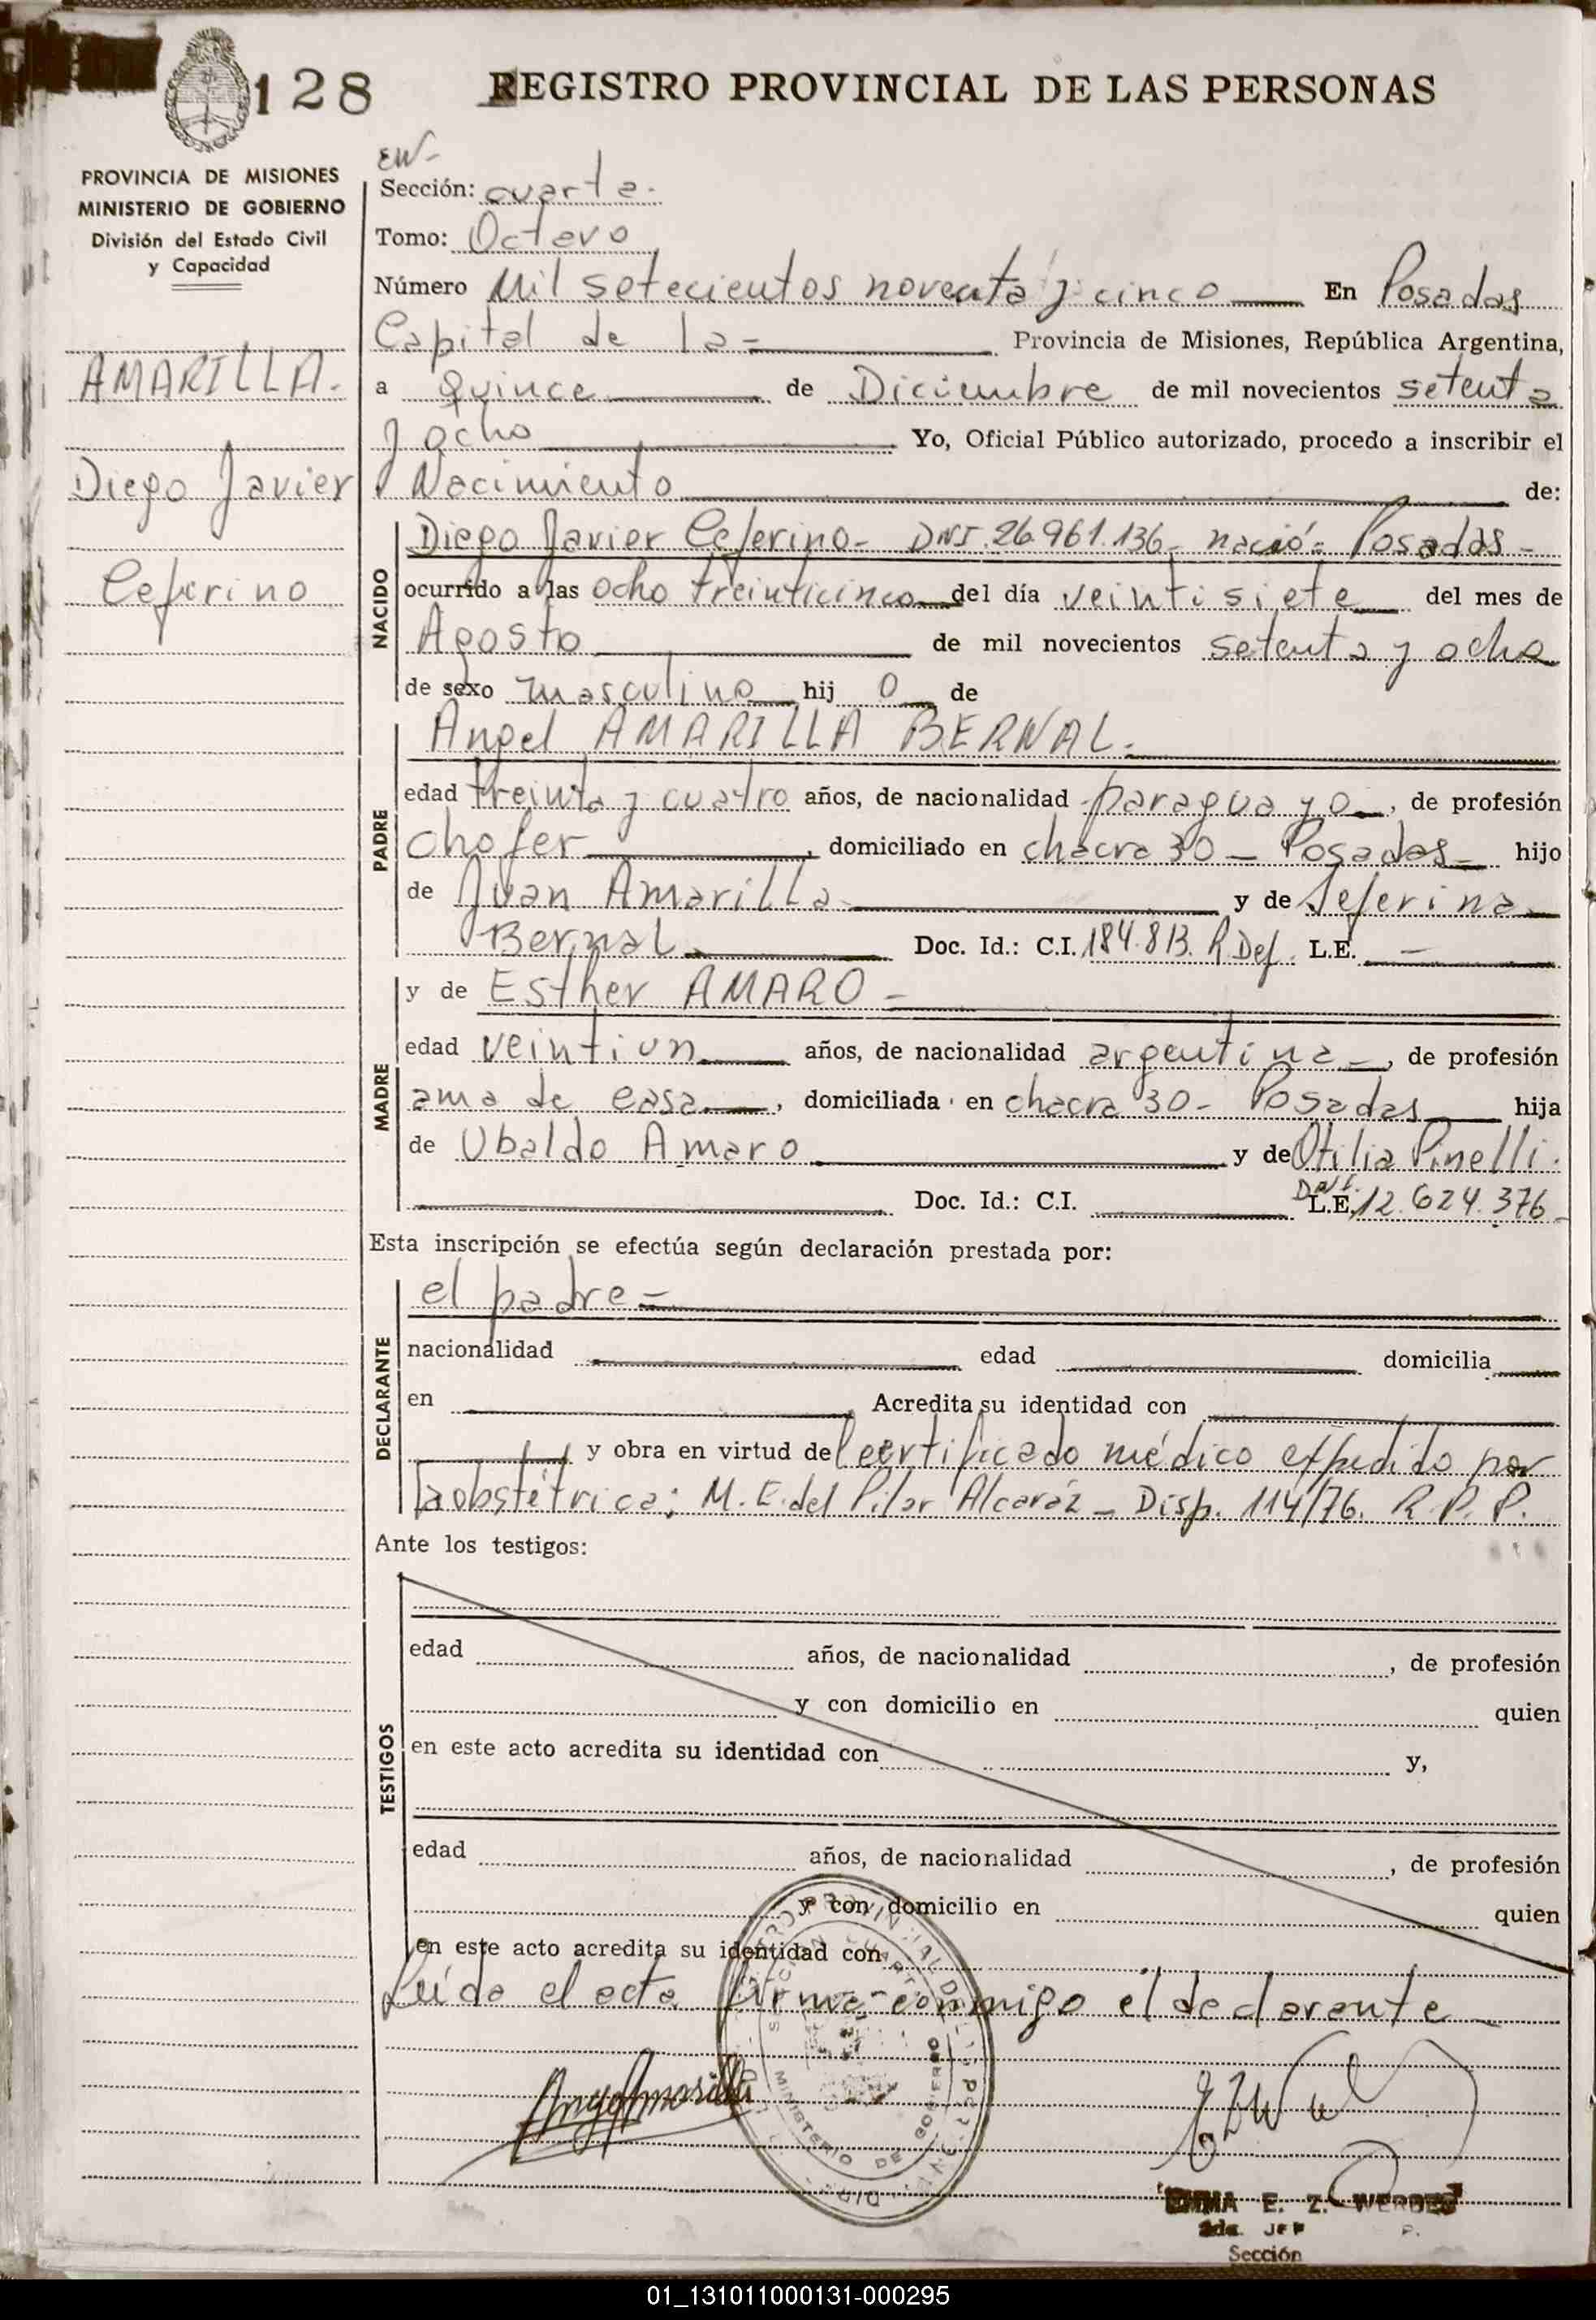 128
REGISTRO PROVINCIAL DE LAS PERSONAS
PROVINCIA DE MISIONES
MINISTERIO DE GOBIERNO
División del Estado Civil
y Capacidad
AMARILLA.
Diego Javier
Ceferino
EW-
Sección: cuarta.
Tomo: Octavo
Número Mil setecientos noventa y cinco En Posadas
Capital de la - Provincia de Misiones, República Argentina,
a quince de Diciembre de mil novecientos setenta
y ocho Yo, Oficial Público autorizado, procedo a inscribir el
Nacimiento de:
NACIDO
Diego Javier Ceferino - DNI. 26.961.136 - nació - Posadas -
ocurrido a las ocho treinticinco del día veintisiete del mes de
Agosto de mil novecientos setenta y ocho
de sexo masculino hij o de
PADRE
Angel AMARILLA BERNAL.
edad treinta y cuatro años, de nacionalidad paraguayo, de profesión
chofer, domiciliado en chacra 30 - Posadas - hijo
de Juan Amarilla y de Seferina
Bernal Doc. Id.: C.I. 184.813. P. Def. L.E. -
MADRE
y de Esther AMARO -
edad veintiun años, de nacionalidad argentina, de profesión
ama de casa, domiciliada en chacra 30 - Posadas hija
de Ubaldo Amaro y de Otilia Pinelli.
Doc. Id.: C.I. DNI. L.E. 12.624.376
Esta inscripción se efectúa según declaración prestada por:
DECLARANTE
el padre =
nacionalidad edad domicilia
en Acredita su identidad con
y obra en virtud del certificado médico expedido por
la obstétrica; M. E. del Pilar Alcaráz - Disp. 114/76. R. P. P.
Ante los testigos:
TESTIGOS
edad años, de nacionalidad , de profesión
y con domicilio en quien
en este acto acredita su identidad con y,
edad años, de nacionalidad , de profesión
y con domicilio en quien
en este acto acredita su identidad con
Leída el acta firma conmigo el declarante
MINISTERIO DE GOBIERNO
EMMA E. Z. WERBES
2da. JEF P.
Sección
01_131011000131-000295